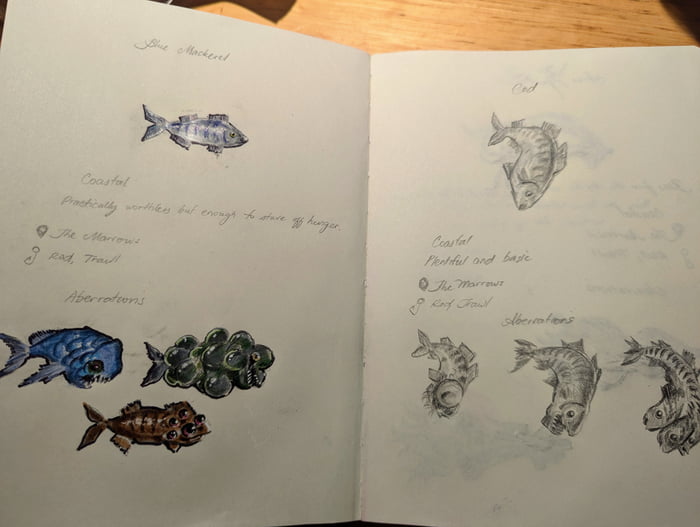 Blue Mackerel
Coastal
Practically worthless but enough to stave off hunger.
The Marrows
Rod, Trawl
Aberrations
Cod
Coastal
Plentiful and basic
The Marrows
Rod Trawl
Aberrations